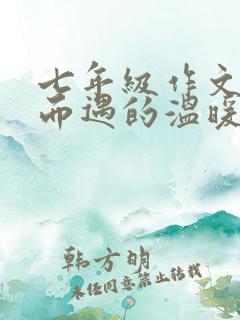 七年级作文
而遇的温暖
韩方明
未经同意禁止转载